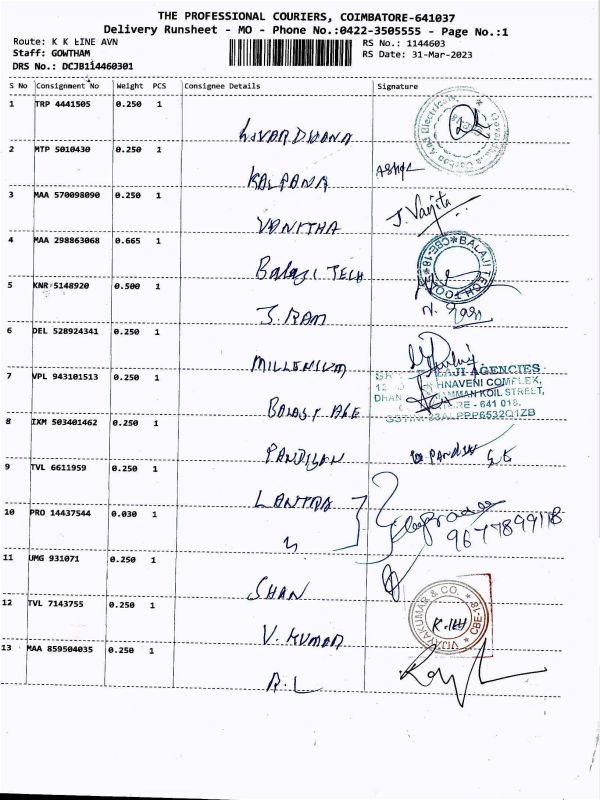 THE PROFESSIONAL COURIERS, COIMBATORE-641037
Delivery Runsheet - MO - Phone No.:0422-3505555 - Page No.:1
Route: K K LINE AVN RS No.: 1144603
Staff: GOWTHAM RS Date: 31-Mar-2023
DRS No.: DCJB114460301
S No Consignment No Weight PCS Consignee Details Signature
1 TRP 4441505 0.250 1
2 MTP 5010430 0.250 1 KALPANA
3 MAA 570098090 0.250 1 VANITHA J. Vanjita
4 MAA 298863068 0.665 1 Balaji TECH BALAJI TECH TOOLS CBE-18
5 KNR 5148920 0.500 1 J. RAM
6 DEL 528924341 0.250 1 MILLENIUM
7 VPL 943101513 0.250 1 BALAJI AGE
BALAJI AGENCIES
HNAVENI COMPLEX,
DHAN MMAN KOIL STREET,
RE - 641 018.
8 IXM 503401462 0.250 1 PANDIYAN
9 TVL 6611959 0.250 1 LANTRA
10 PRO 14437544 0.030 1 9677899118
11 UMG 931071 0.250 1 SHAN
12 TVL 7143755 0.250 1 V. KUMAR VIJAYAKUMAR & CO. CBE-18
13 MAA 859504035 0.250 1 R.L